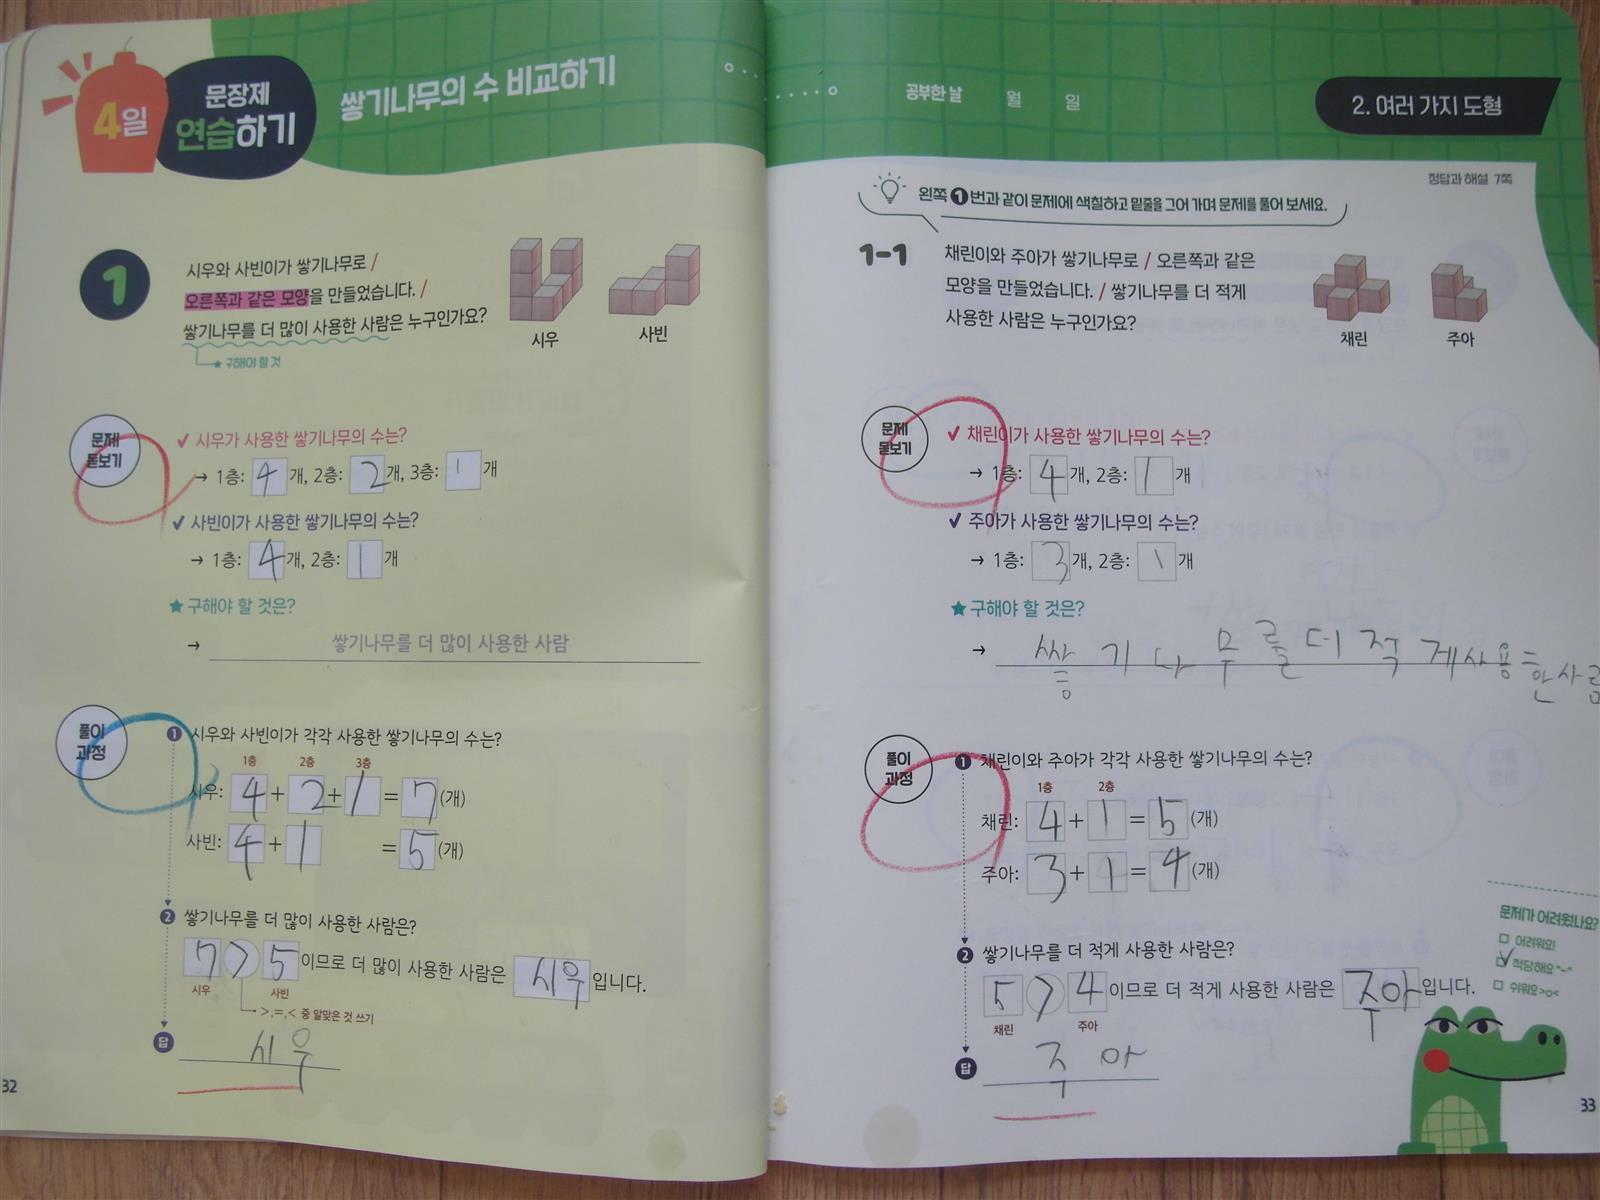 4일
문장제
연습하기
쌓기나무의 수 비교하기
1
시우와 사빈이가 쌓기나무로 /
오른쪽과 같은 모양을 만들었습니다. /
쌓기나무를 더 많이 사용한 사람은 누구인가요?
★ 구해야 할 것
시우
사빈
문제
돋보기
✓ 시우가 사용한 쌓기나무의 수는?
→ 1층: 4 개, 2층: 2 개, 3층: 1 개
✓ 사빈이가 사용한 쌓기나무의 수는?
→ 1층: 4 개, 2층: 1 개
★ 구해야 할 것은?
→ 쌓기나무를 더 많이 사용한 사람
풀이
과정
❶ 시우와 사빈이가 각각 사용한 쌓기나무의 수는?
1층 2층 3층
시우: 4 + 2 + 1 = 7 (개)
사빈: 4 + 1 = 5 (개)
❷ 쌓기나무를 더 많이 사용한 사람은?
7 > 5 이므로 더 많이 사용한 사람은 시우 입니다.
시우 사빈
>, =, < 중 알맞은 것 쓰기
답 시우
32
공부한 날 월 일
2. 여러 가지 도형
정답과 해설 7쪽
왼쪽 ❶번과 같이 문제에 색칠하고 밑줄을 그어 가며 문제를 풀어 보세요.
1-1
채린이와 주아가 쌓기나무로 / 오른쪽과 같은
모양을 만들었습니다. / 쌓기나무를 더 적게
사용한 사람은 누구인가요?
채린
주아
문제
돋보기
✓ 채린이가 사용한 쌓기나무의 수는?
→ 1층: 4 개, 2층: 1 개
✓ 주아가 사용한 쌓기나무의 수는?
→ 1층: 3 개, 2층: 1 개
★ 구해야 할 것은?
→ 기나무를 더 적게 사용한 사람
풀이
과정
❶ 채린이와 주아가 각각 사용한 쌓기나무의 수는?
1층 2층
채린: 4 + 1 = 5 (개)
주아: 3 + 1 = 4 (개)
❷ 쌓기나무를 더 적게 사용한 사람은?
5 > 4 이므로 더 적게 사용한 사람은 주아 입니다.
채린 주아
답 주아
문제가 어려웠나요?
어려워요!
적당해요 ^-^
쉬워요 >o<
33